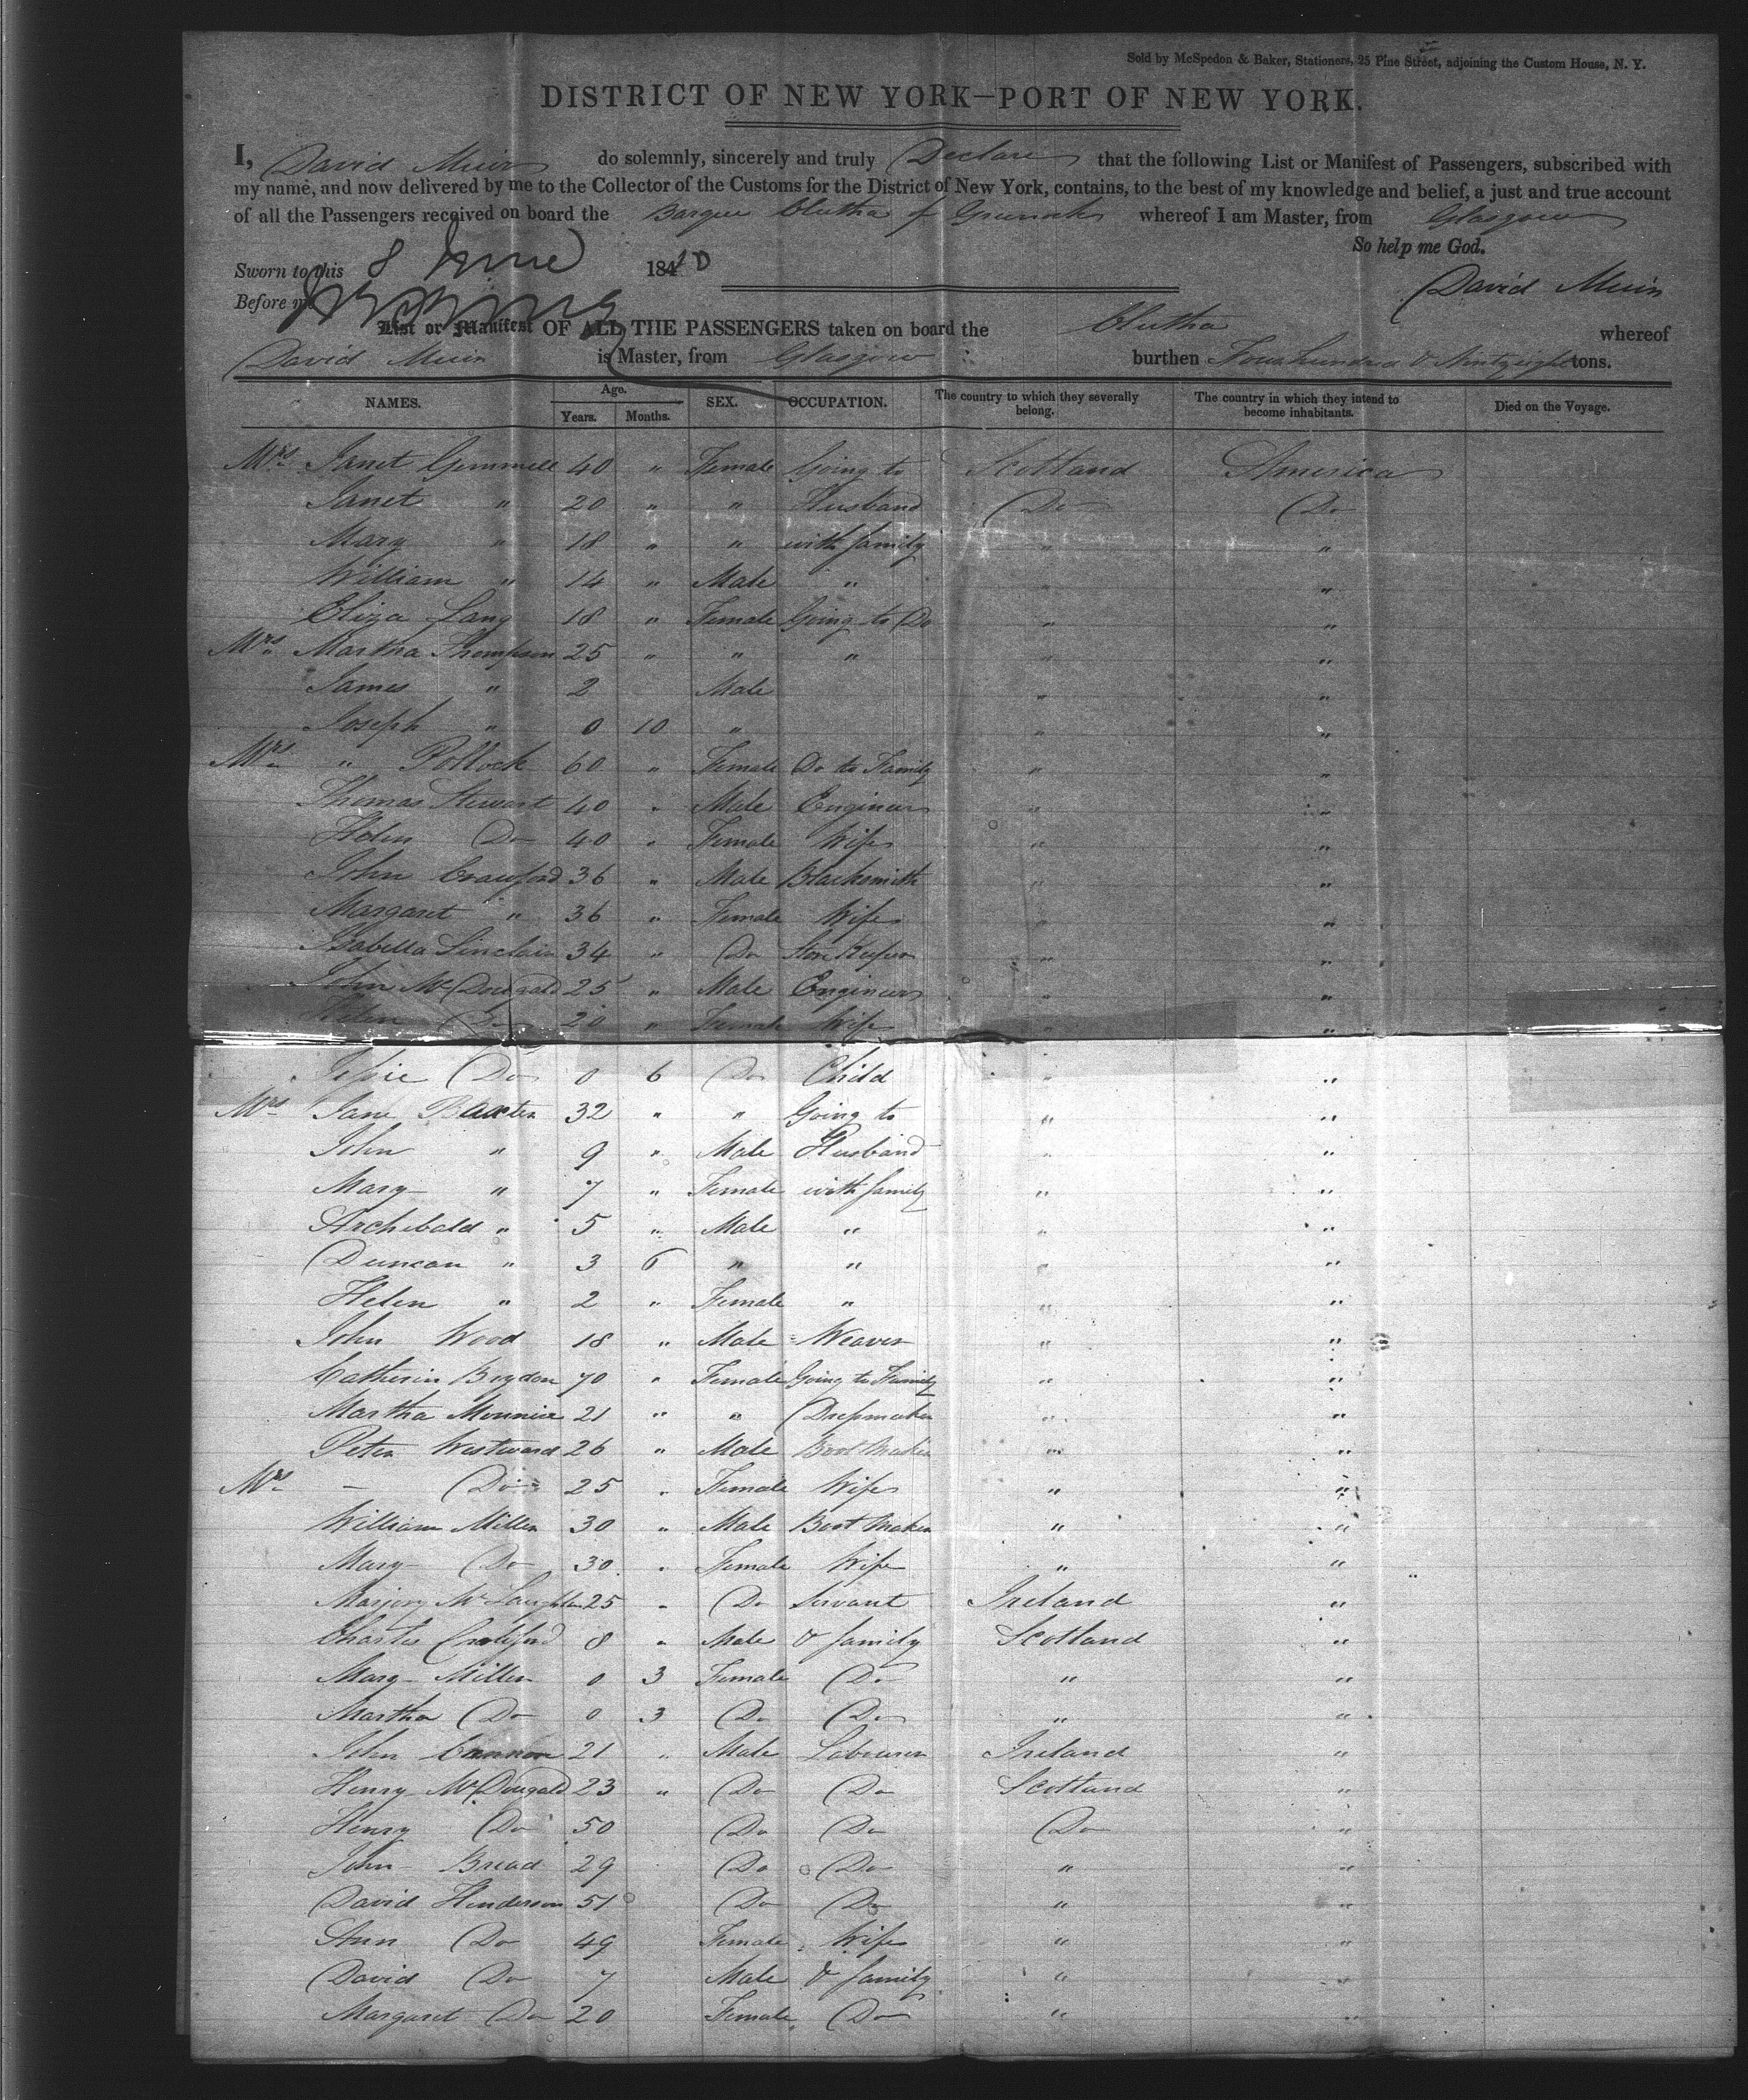 Sold by McSpedon & Baker, Stationers, 25 Pine Street, adjoining the Custom House, N. Y.
DISTRICT OF NEW YORK—PORT OF NEW YORK.
I, David Muir do solemnly, sincerely and truly Declare that the following List or Manifest of Passengers, subscribed with
my name, and now delivered by me to the Collector of the Customs for the District of New York, contains, to the best of my knowledge and belief, a just and true account
of all the Passengers received on board the Barque Clutha of Greenock whereof I am Master, from Glasgow
So help me God.
Sworn to this 8 June 18
Before me David Muir
List or Manifest OF ALL THE PASSENGERS taken on board the Clutha whereof
David Muir is Master, from Glasgow burthen Four hundred & Ninty eight tons.
NAMES. Age. Years. Months. SEX. OCCUPATION. The country to which they severally belong. The country in which they intend to become inhabitants. Died on the Voyage.
Mrs. Janet Gemmell 40 " Female Going to Scotland America
Janet " 20 " " Husband Do Do
Mary " 18 " " with family " "
William " 14 " Male " "
Eliza Lang 18 " Female Going to Do " "
Mrs. Martha Thompson 25 " " " " "
James " 2 Male " "
Joseph " 0 10 " " "
Mrs " Pollock 60 " Female Do to Family " "
Thomas Stewart 40 " Male Engineer " "
Helen Do 40 " Female Wife " "
John Crawford 36 " Male Blacksmith " "
Margaret " 36 " Female Wife " "
Isabella Sinclair 34 " Do Store Keeper " "
John McDougald 25 " Male Engineer " "
Helen Do 20 " Female Wife " "
Jessie Do 0 6 Do Child " "
Mrs Jane Baxter 32 " " Going to " "
John " 9 " Male Husband " "
Mary " 7 " Female with family " "
Archibald " 5 " Male " " "
Duncan " 3 6 " " " "
Helen " 2 " Female " " "
John Wood 18 " Male Weaver " "
Catherin Brydon 70 " Female Going to Family " "
Martha 21 " " Dressmaker " "
Peter Westward 26 " Male Boot Maker " "
Mrs — Do 25 " Female Wife " "
William Miller 30 " Male Boot Maker " "
Mary Do 30 " Female Wife " "
Marjory McLaughlan 25 " Do Servant Ireland "
Charles 8 " Male & family Scotland "
Mary Miller 0 3 Female Do " "
Martha Do 0 3 Do Do " "
John Cannon 21 " Male Labourer Ireland "
Henry McDougald 23 " Do Do Scotland "
Henry Do 50 Do Do Do "
John Bread 29 Do Do " "
David Henderson 51 Do Do " "
Ann Do 49 Female Wife " "
David Do 7 Male & family " "
Margaret Do 20 Female Do " "